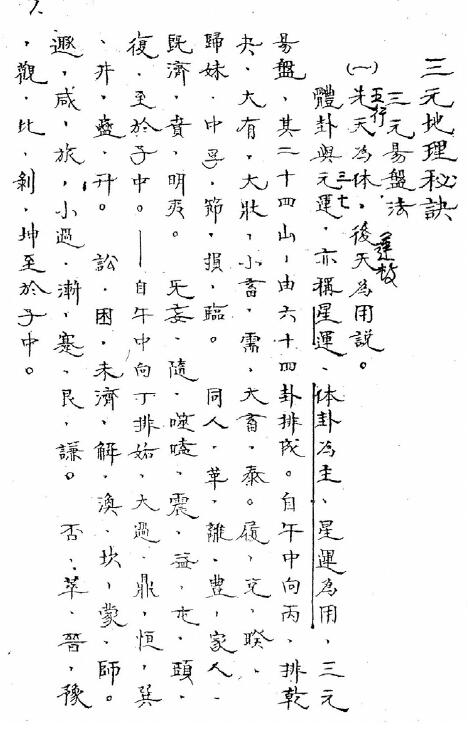 三元地理秘訣
三元易盤法
五行
(一)先天為体,後天為用説。
三七
體卦與元運,亦稱星運、体卦為主、星運為用,三元
易盤,其二十四山,由六十四卦排成。自午中向丙、排乾
夬、大有,大壯,小畜,需,大畜,泰。履,兌,睽、
歸妹、中孚,節,損,臨。同人,革,離,豊,家人、
既濟,賁,明夷。旡妄、隨,噬嗑,震,益,屯,頤、
復、至於子中。——自午中向丁排姤,大過、鼎,恒,巽
、井,蠱,升。訟,困,未濟,解,渙、坎,蒙,師。
遯,咸,旅,小過、漸,蹇,艮,謙。否、萃,晉,豫
,觀,比,剝,坤至於子中。